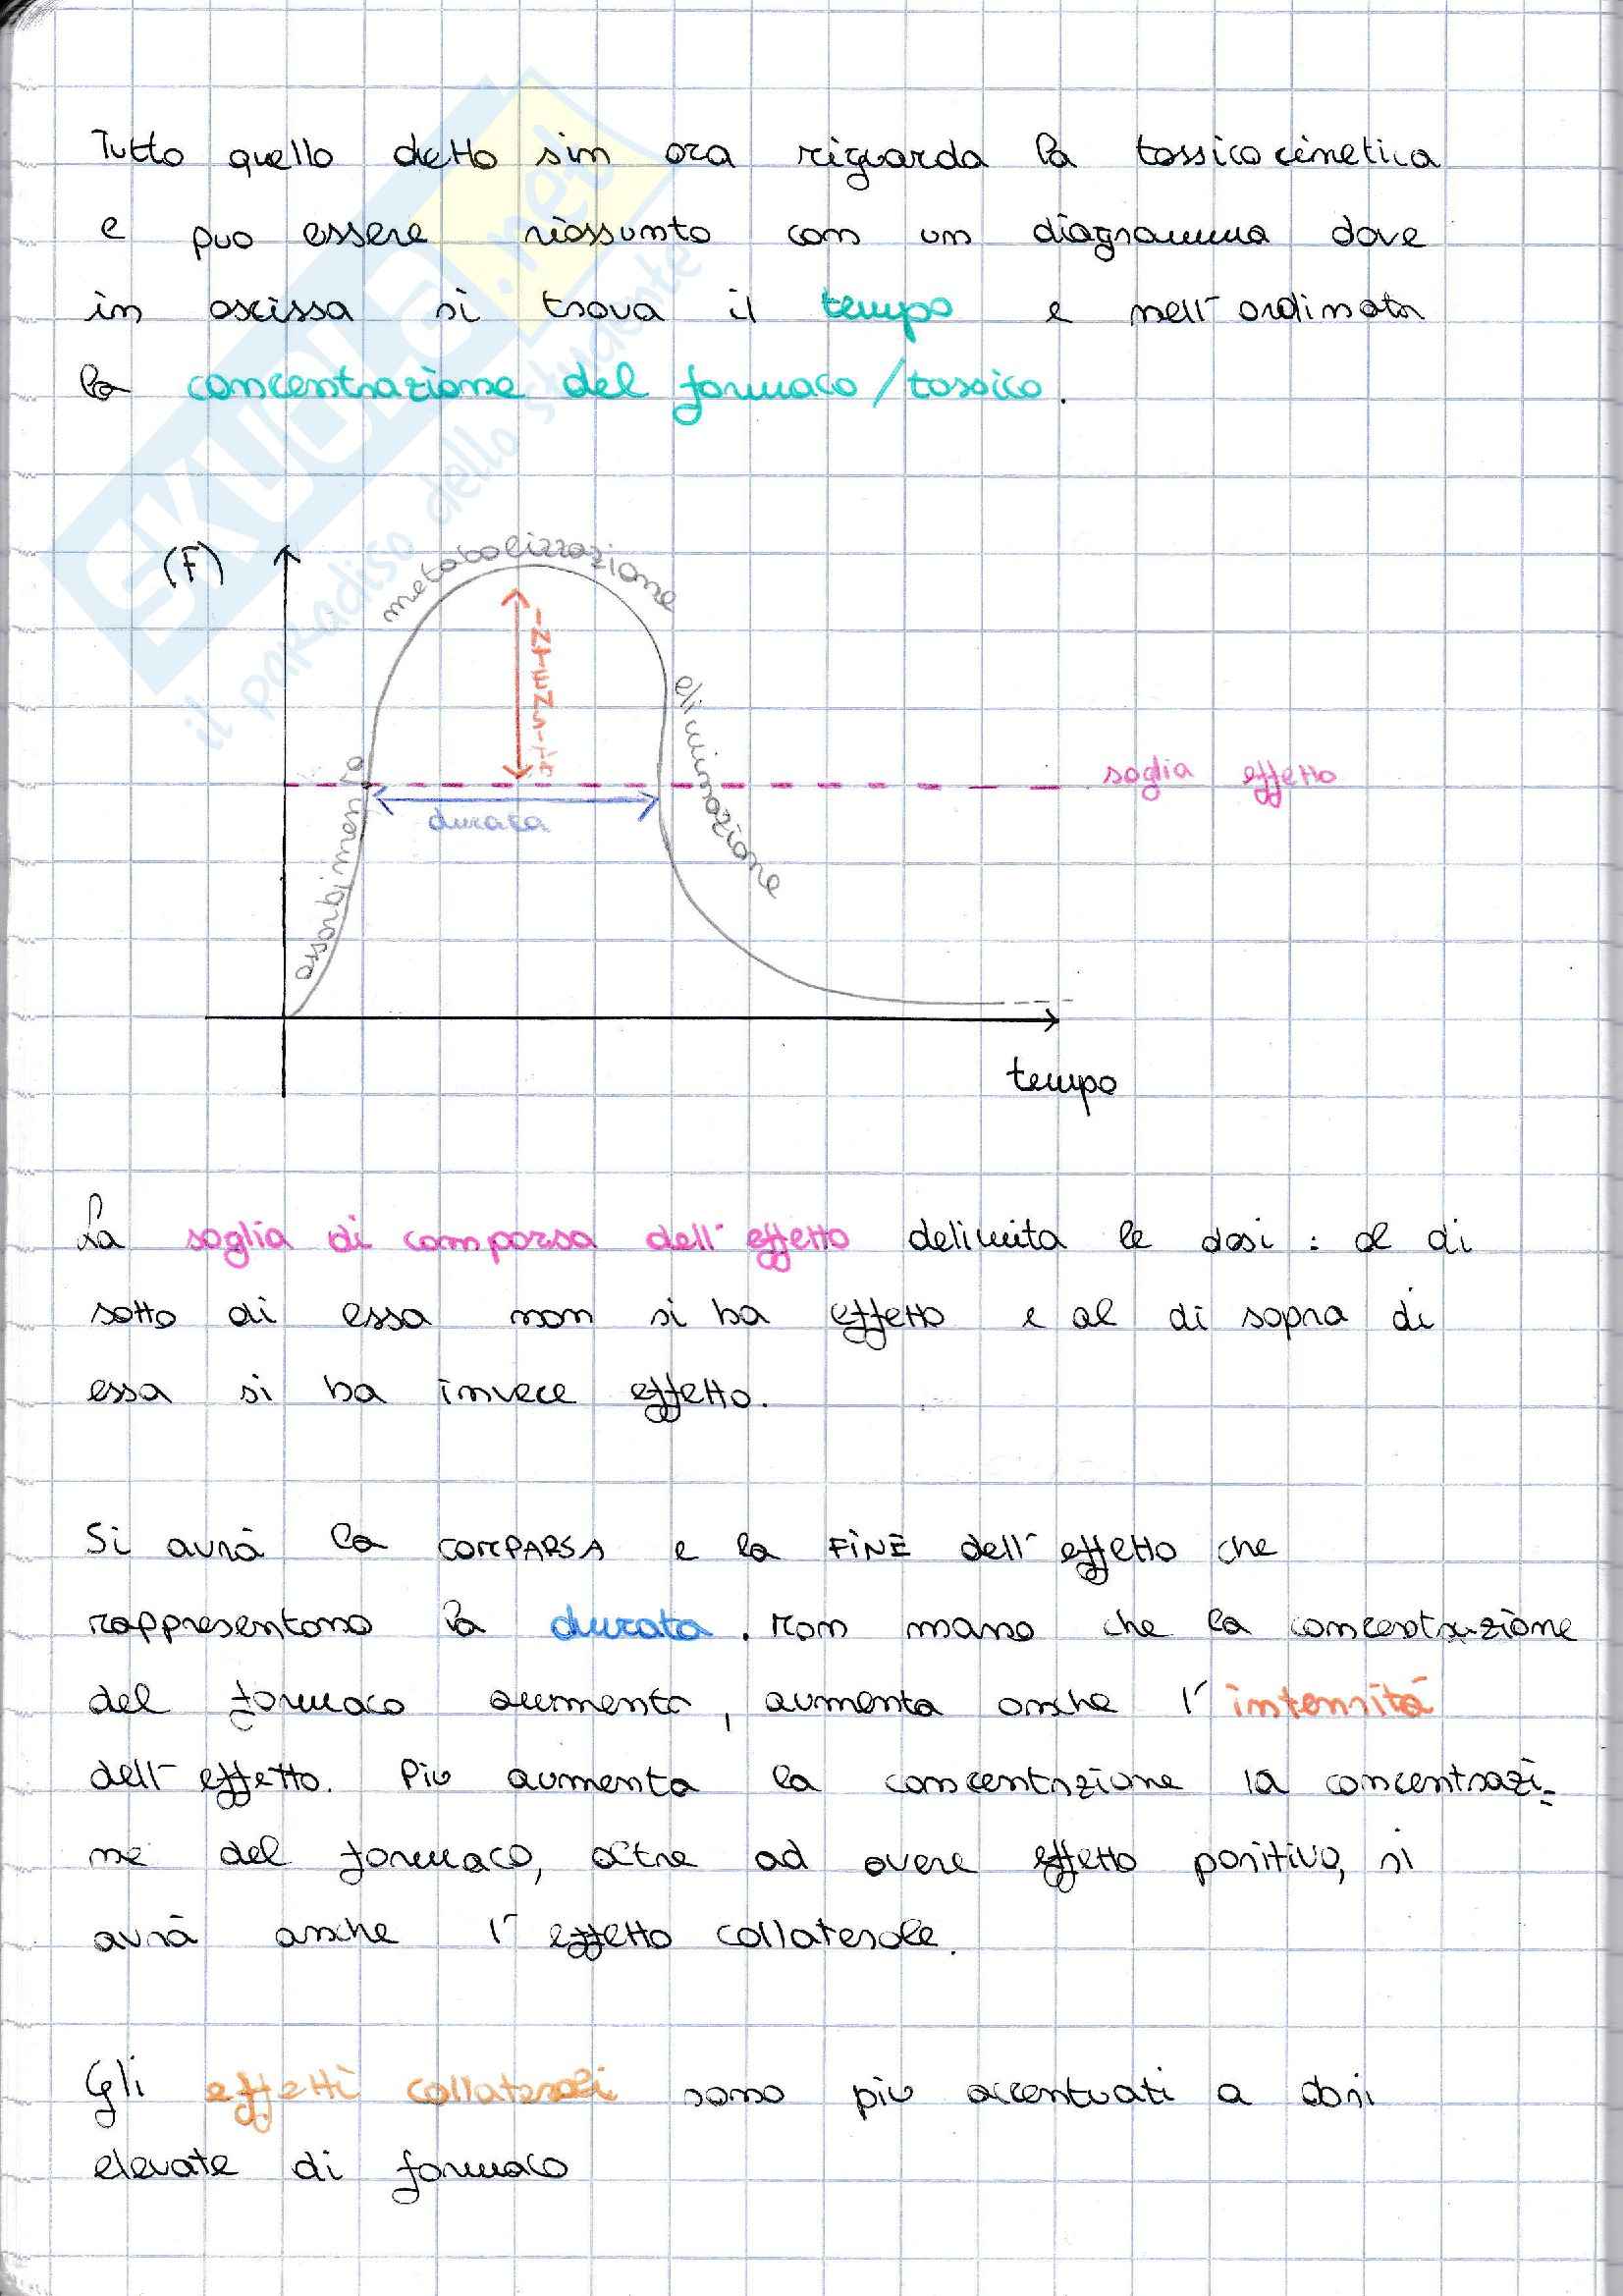 Tutto quello detto sin ora riguarda la tossicocinetica
e puo essere riassunto con un diagramma dove
in ascissa si trova il tempo e nell'ordinata
la concentrazione del farmaco/tossico.
(F)
metabolizzazione
INTENSITÀ
eliminazione
assorbimento
soglia effetto
durata
tempo
La soglia di comparsa dell'effetto delimita le dosi: al di
sotto di essa non si ha effetto e al di sopra di
essa si ha invece effetto.
Si avrà la COMPARSA e la FINE dell'effetto che
rappresentano la durata. Man mano che la concentrazione
del farmaco aumenta, aumenta anche l'intensità
dell'effetto. Più aumenta la concentrazione la concentrazi-
ne del farmaco, oltre ad avere effetto positivo, si
avrà anche l'effetto collaterale.
Gli effetti collaterali sono più accentuati a dosi
elevate di farmaco
SKUOLA.net
il paradiso dello studente